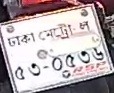 ঢাকা মেট্রো ল
৫৩-০৫৩৬